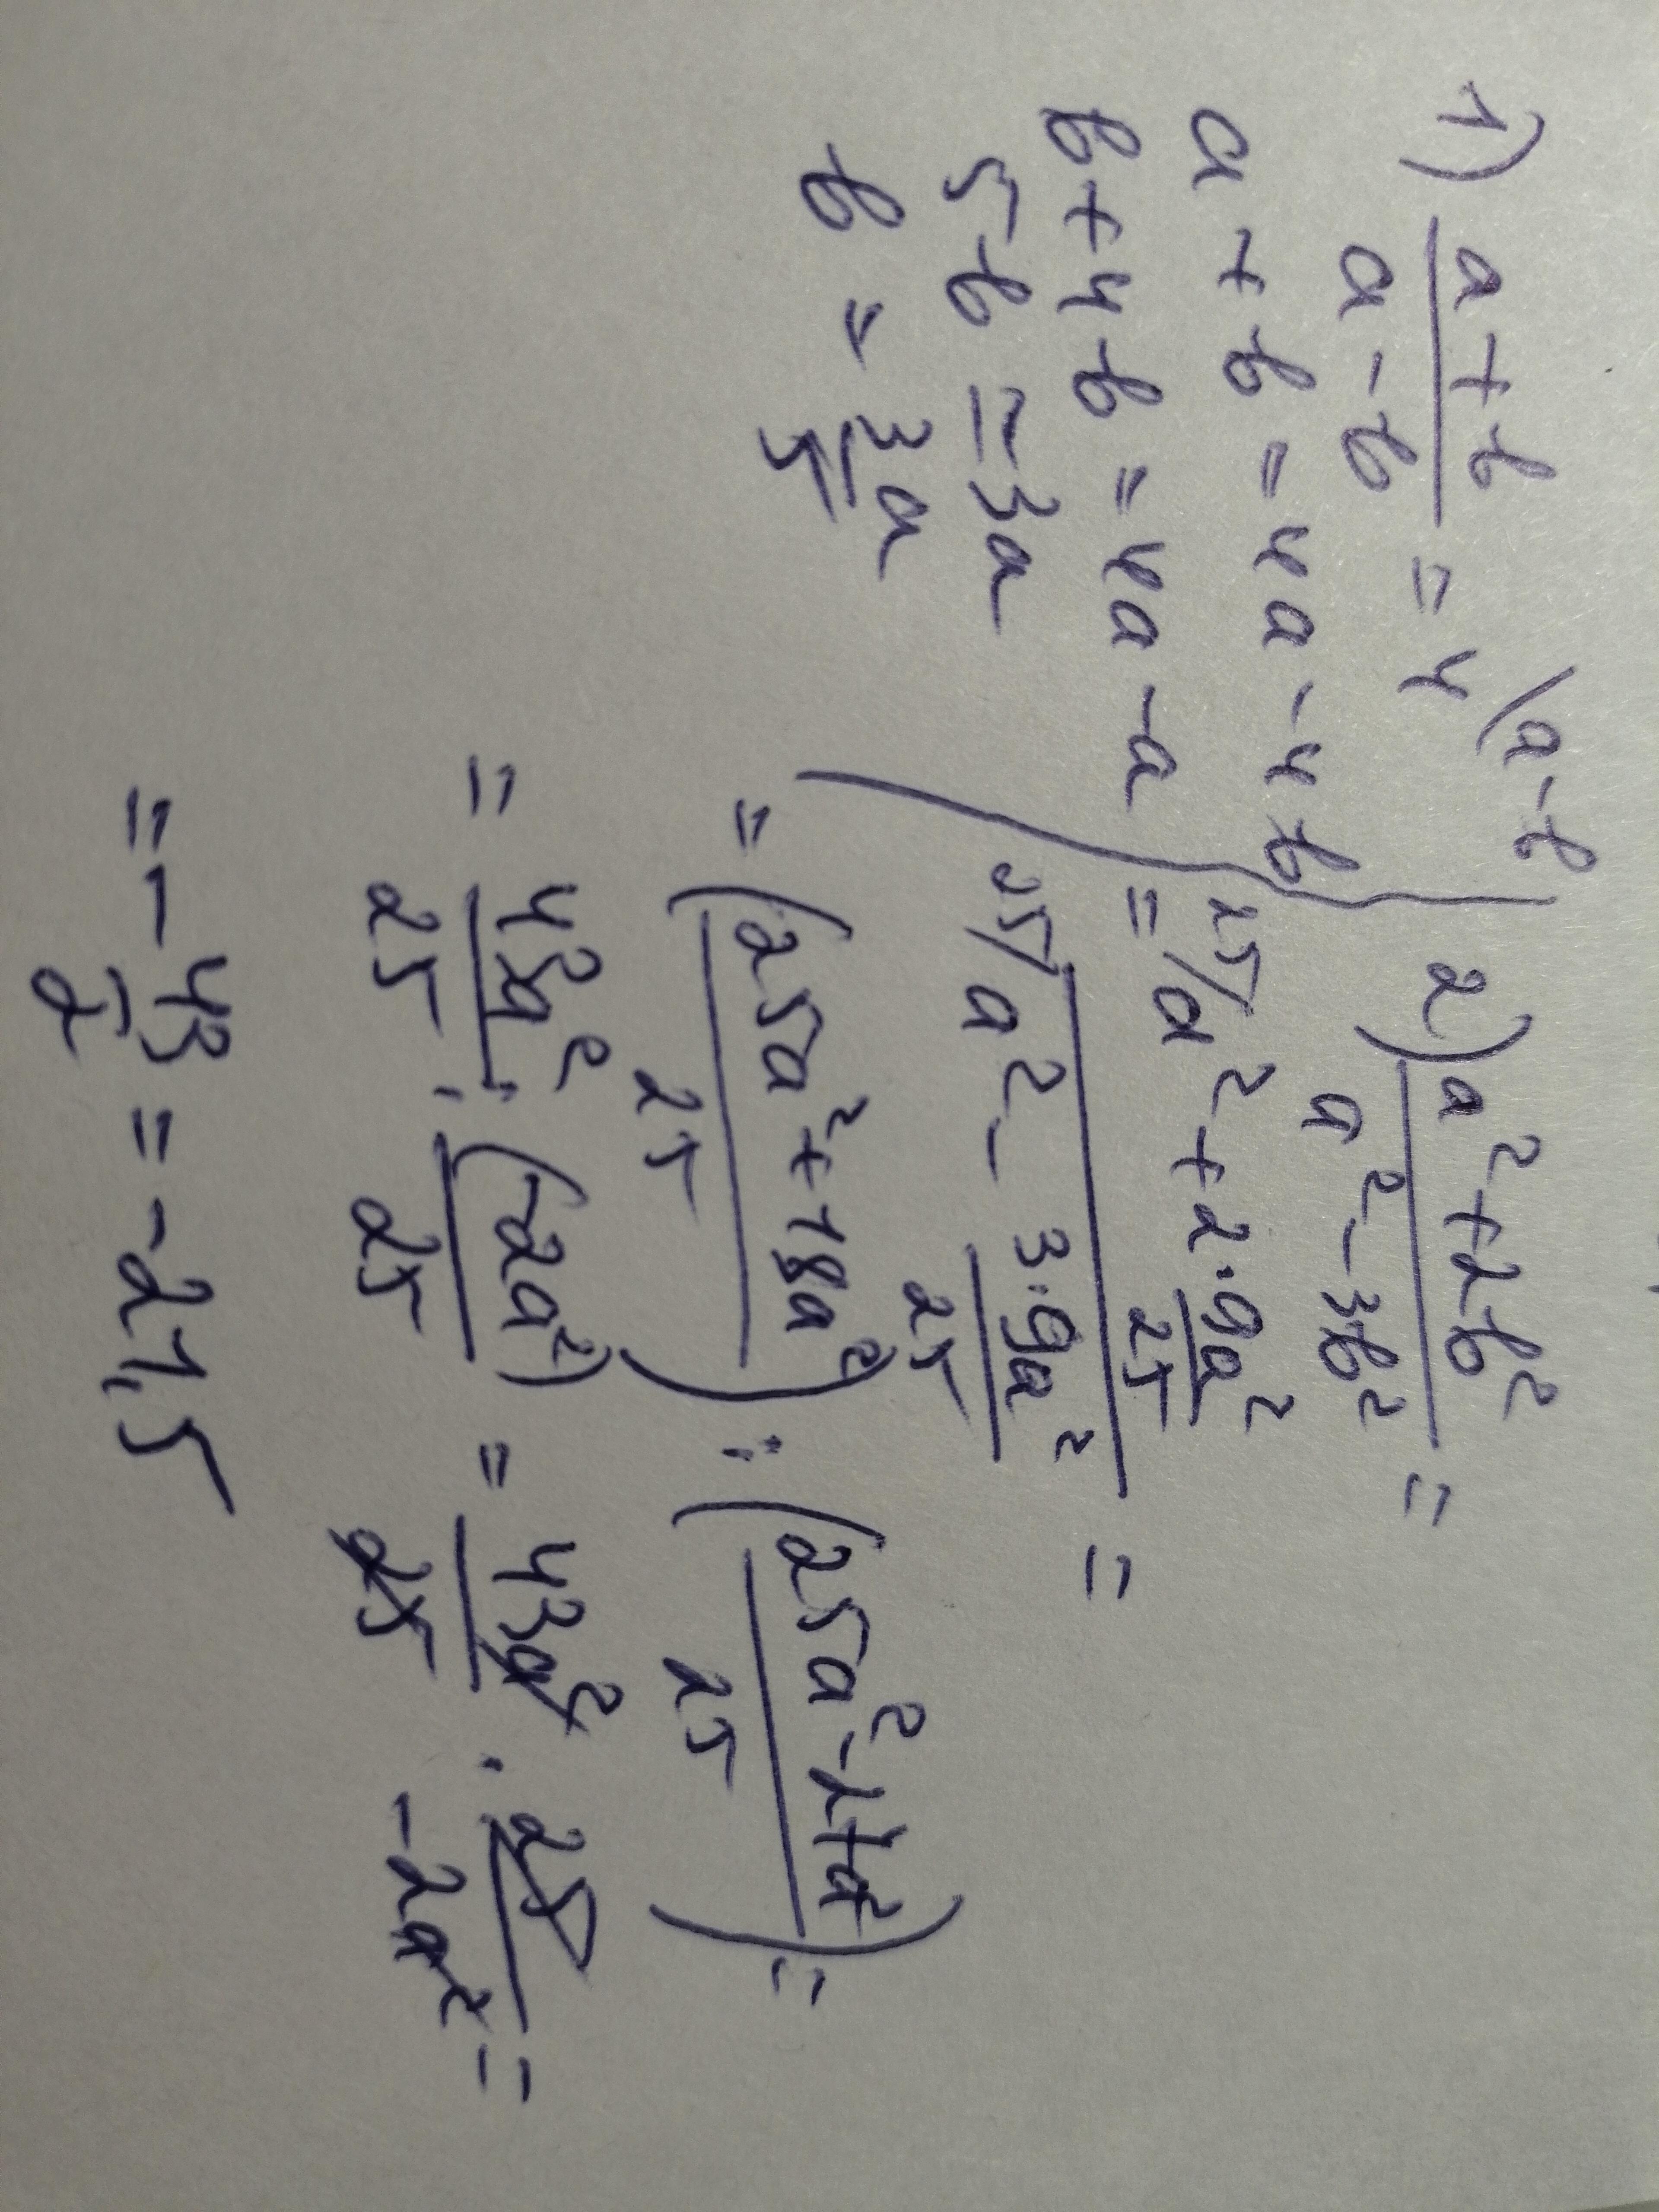 1) (a+b)/(a-b) = 4 /(a-b
a + b = 4a - 4b
b + 4b = 4a - a
5b = 3a
b = 3/5 a
2) (a²+2b²)/(a²-3b²) =
= (²⁵/a² + 2·9a²/25)/(²⁵/a² - 3·9a²/25) =
= ((25a²+18a²)/25) : ((25a²-27a²)/25) =
= 43a²/25 : (-2a²)/25 = 43a²/25 · 25/-2a² =
= -43/2 = -21,5